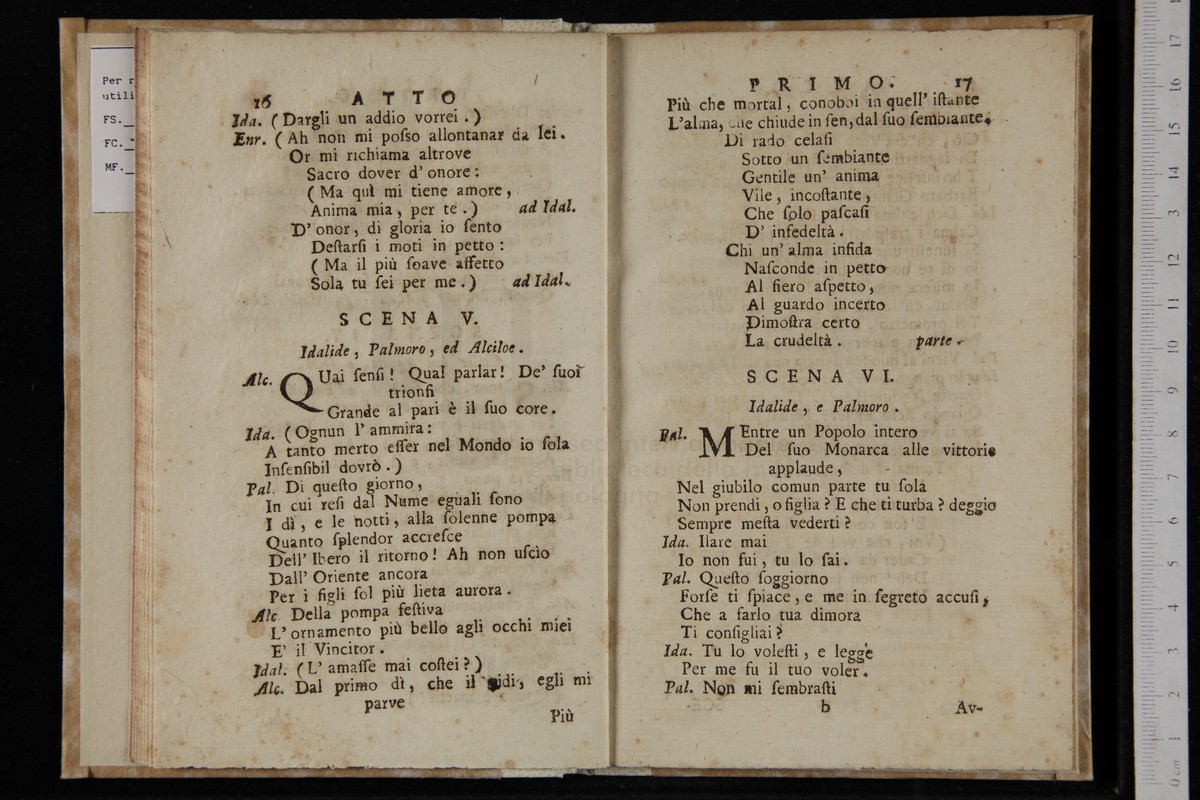 Per r
utili
FS._
FC._
MF._
16 ATTO
Ida. (Dargli un addio vorrei.)
Enr. (Ah non mi poſso allontanar da lei.
Or mi richiama altrove
Sacro dover d' onore:
(Ma quì mi tiene amore,
Anima mia, per te.) ad Idal.
D' onor, di gloria io ſento
Deſtarſi i moti in petto:
(Ma il più ſoave affetto
Sola tu ſei per me.) ad Idal.
SCENA V.
Idalide, Palmoro, ed Alciloe.
Alc. QUai ſenſi! Qual parlar! De' ſuoi
trionfi
Grande al pari è il ſuo core.
Ida. (Ognun l' ammira:
A tanto merto eſſer nel Mondo io ſola
Inſenſibil dovrò.)
Pal. Di queſto giorno,
In cui reſi dal Nume eguali ſono
I dì, e le notti, alla ſolenne pompa
Quanto ſplendor accreſce
Dell' Ibero il ritorno! Ah non uſcìo
Dall' Oriente ancora
Per i figli ſol più lieta aurora.
Alc Della pompa feſtiva
L' ornamento più bello agli occhi miei
E' il Vincitor.
Idal. (L' amaſſe mai coſtei?)
Alc. Dal primo dì, che il vidi, egli mi
parve
Più
PRIMO. 17
Più che mortal, conobbi in quell' iſtante
L'alma, che chiude in ſen, dal ſuo ſembiante.
Di rado celaſi
Sotto un ſembiante
Gentile un' anima
Vile, incoſtante,
Che ſolo paſcaſi
D' infedeltà.
Chi un' alma infida
Naſconde in petto
Al fiero aſpetto,
Al guardo incerto
Dimoſtra certo
La crudeltà. parte.
SCENA VI.
Idalide, e Palmoro.
Pal. MEntre un Popolo intero
Del ſuo Monarca alle vittorie
applaude,
Nel giubilo comun parte tu ſola
Non prendi, o figlia? E che ti turba? deggio
Sempre meſta vederti?
Ida. Ilare mai
Io non fui, tu lo ſai.
Pal. Queſto ſoggiorno
Forſe ti ſpiace, e me in ſegreto accuſi,
Che a farlo tua dimora
Ti conſigliai?
Ida. Tu lo voleſti, e legge
Per me fu il tuo voler.
Pal. Non mi ſembraſti
b Av-